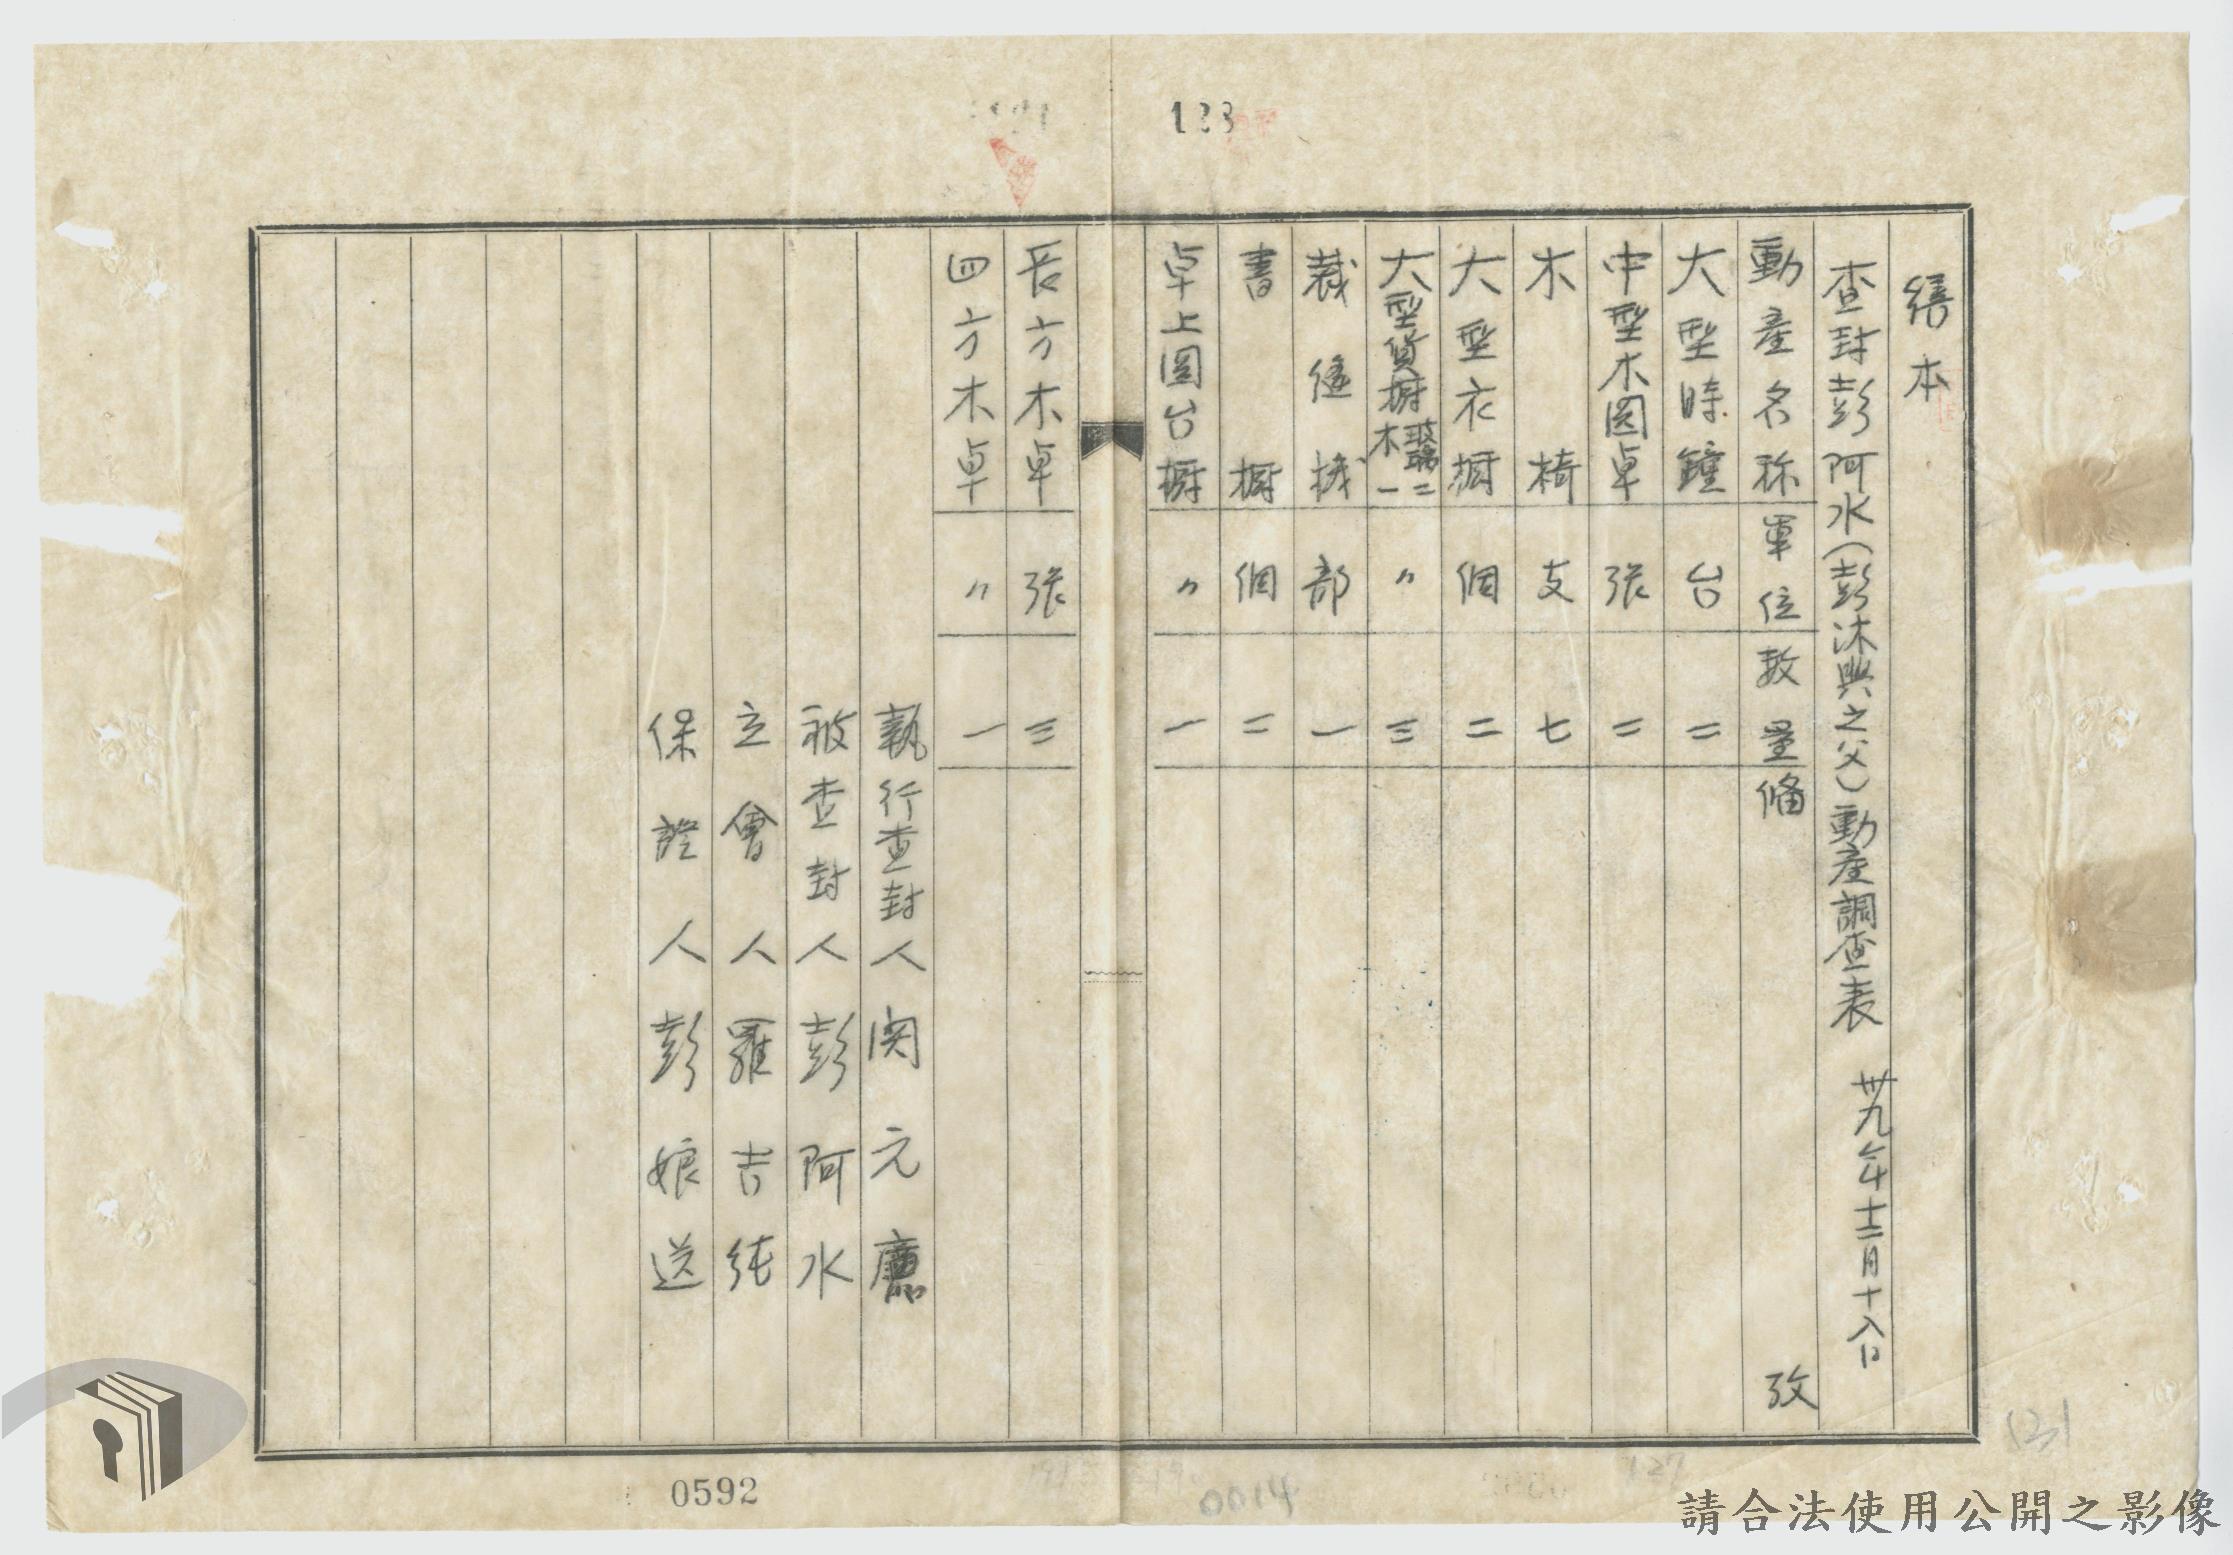 123
繕本
查封彭阿水(彭沐興之父)動產調查表 卅九年十二月十八日
動產名称 單位 数量 俻攷
大型時鐘 台 二
中型木圓卓 張 二
木椅 支 七
大型衣橱 個 二
大型貨橱 玻璃二 木一 〃 三
裁縫機 部 一
書橱 個 二
卓上圓台橱 〃 一
長方木卓 張 三
四方木卓 〃 一
執行查封人 関元
被查封人 彭阿水
立會人 羅吉纯
保證人 彭娘送
0592
0014
127
131
請合法使用公開之影像